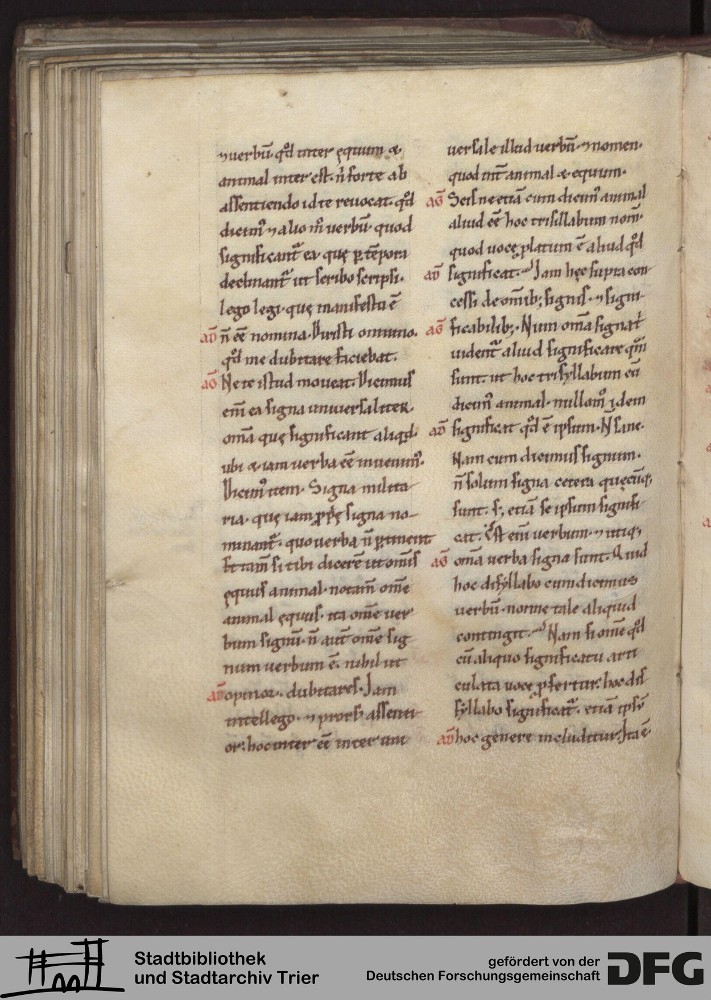 ⁊ verbū. qđ inter ęquum &
animal inter est. n̄ forte ab
assentiendo id te revocat. qđ
dicim᷒ ⁊ alio m̊ verbū. quod
significant᷑ ea quę ꝑ tēpora
declinant᷑ ut scribo scripsi.
lego legi. quę manifestū ē
aḋ n̄ eē nomina. Dixisti omnino.
qđ me dubitare faciebat.
aḡ Ne te istud moveat. Dicimus
eni̅ ea signa universaliter.
om̅a quę significant aliqđ.
ubi & iam verba eē invenim᷒.
Dicim᷒ item. Signa milita
ria. quę iam ꝓprię signa no-
minant᷑. quo verba n̄ pertinent
Et tam̅ si tibi dicerē ut om̅is
ęquus animal. notam̅ om̅e
animal ęquus. ita om̅e ver
bum signū. n̄ aut̅ om̅e sig
num verbum ē. nihil ut
aḋ opinor. dubitares. Iam
intellego. ⁊ prorsꝰ assenti
or. hoc inter eē inter uni
versale illud verbū. ⁊ nomen.
quod int̅ animal & equum.
aḡ Scis ne etiā cum dicim᷒ animal
aliud eē hoc trisillabum nom̅.
quod voce ꝓlatum ē aliud qđ
aḋ significat. Iam hęc supra con
cessi de om̅ib; signis. ⁊ signi-
aḡ ficabilib;. Num om̅a signa t᷑
vident᷑ aliud significare quā
sunt. ut hoc trisyllabum cū
dicim᷒ animal. nullom̊ idem
aḋ significat qđ ē ipsum. N̄ sane.
Nam cum dicimus signum.
n̄ solum signa cetera quęcūq;
sunt. s; etiā se ipsum signifi
cat. Est eni̅ verbum. ⁊ utiq;
aḡ om̅a verba signa sunt. Quid
hoc disyllabo cum dicimus
verbū. nonne tale aliquid
contingit. Nam si om̅e qđ
cū aliquo significatu arti
culata voce ꝓfertur. hoc dis
syllabo significat᷑. etiam ipsū
aḋ hoc genere includitur. Ita ē.
Stadtbibliothek
und Stadtarchiv Trier
gefördert von der
Deutschen Forschungsgemeinschaft DFG